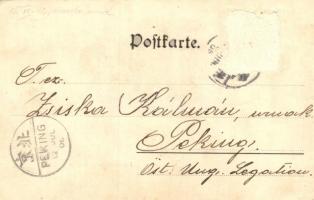 Postkarte.
T. cz.
Zsiska Kálmán, urnak
Peking.
Öst. Ung. Legation.
北京
PEKING